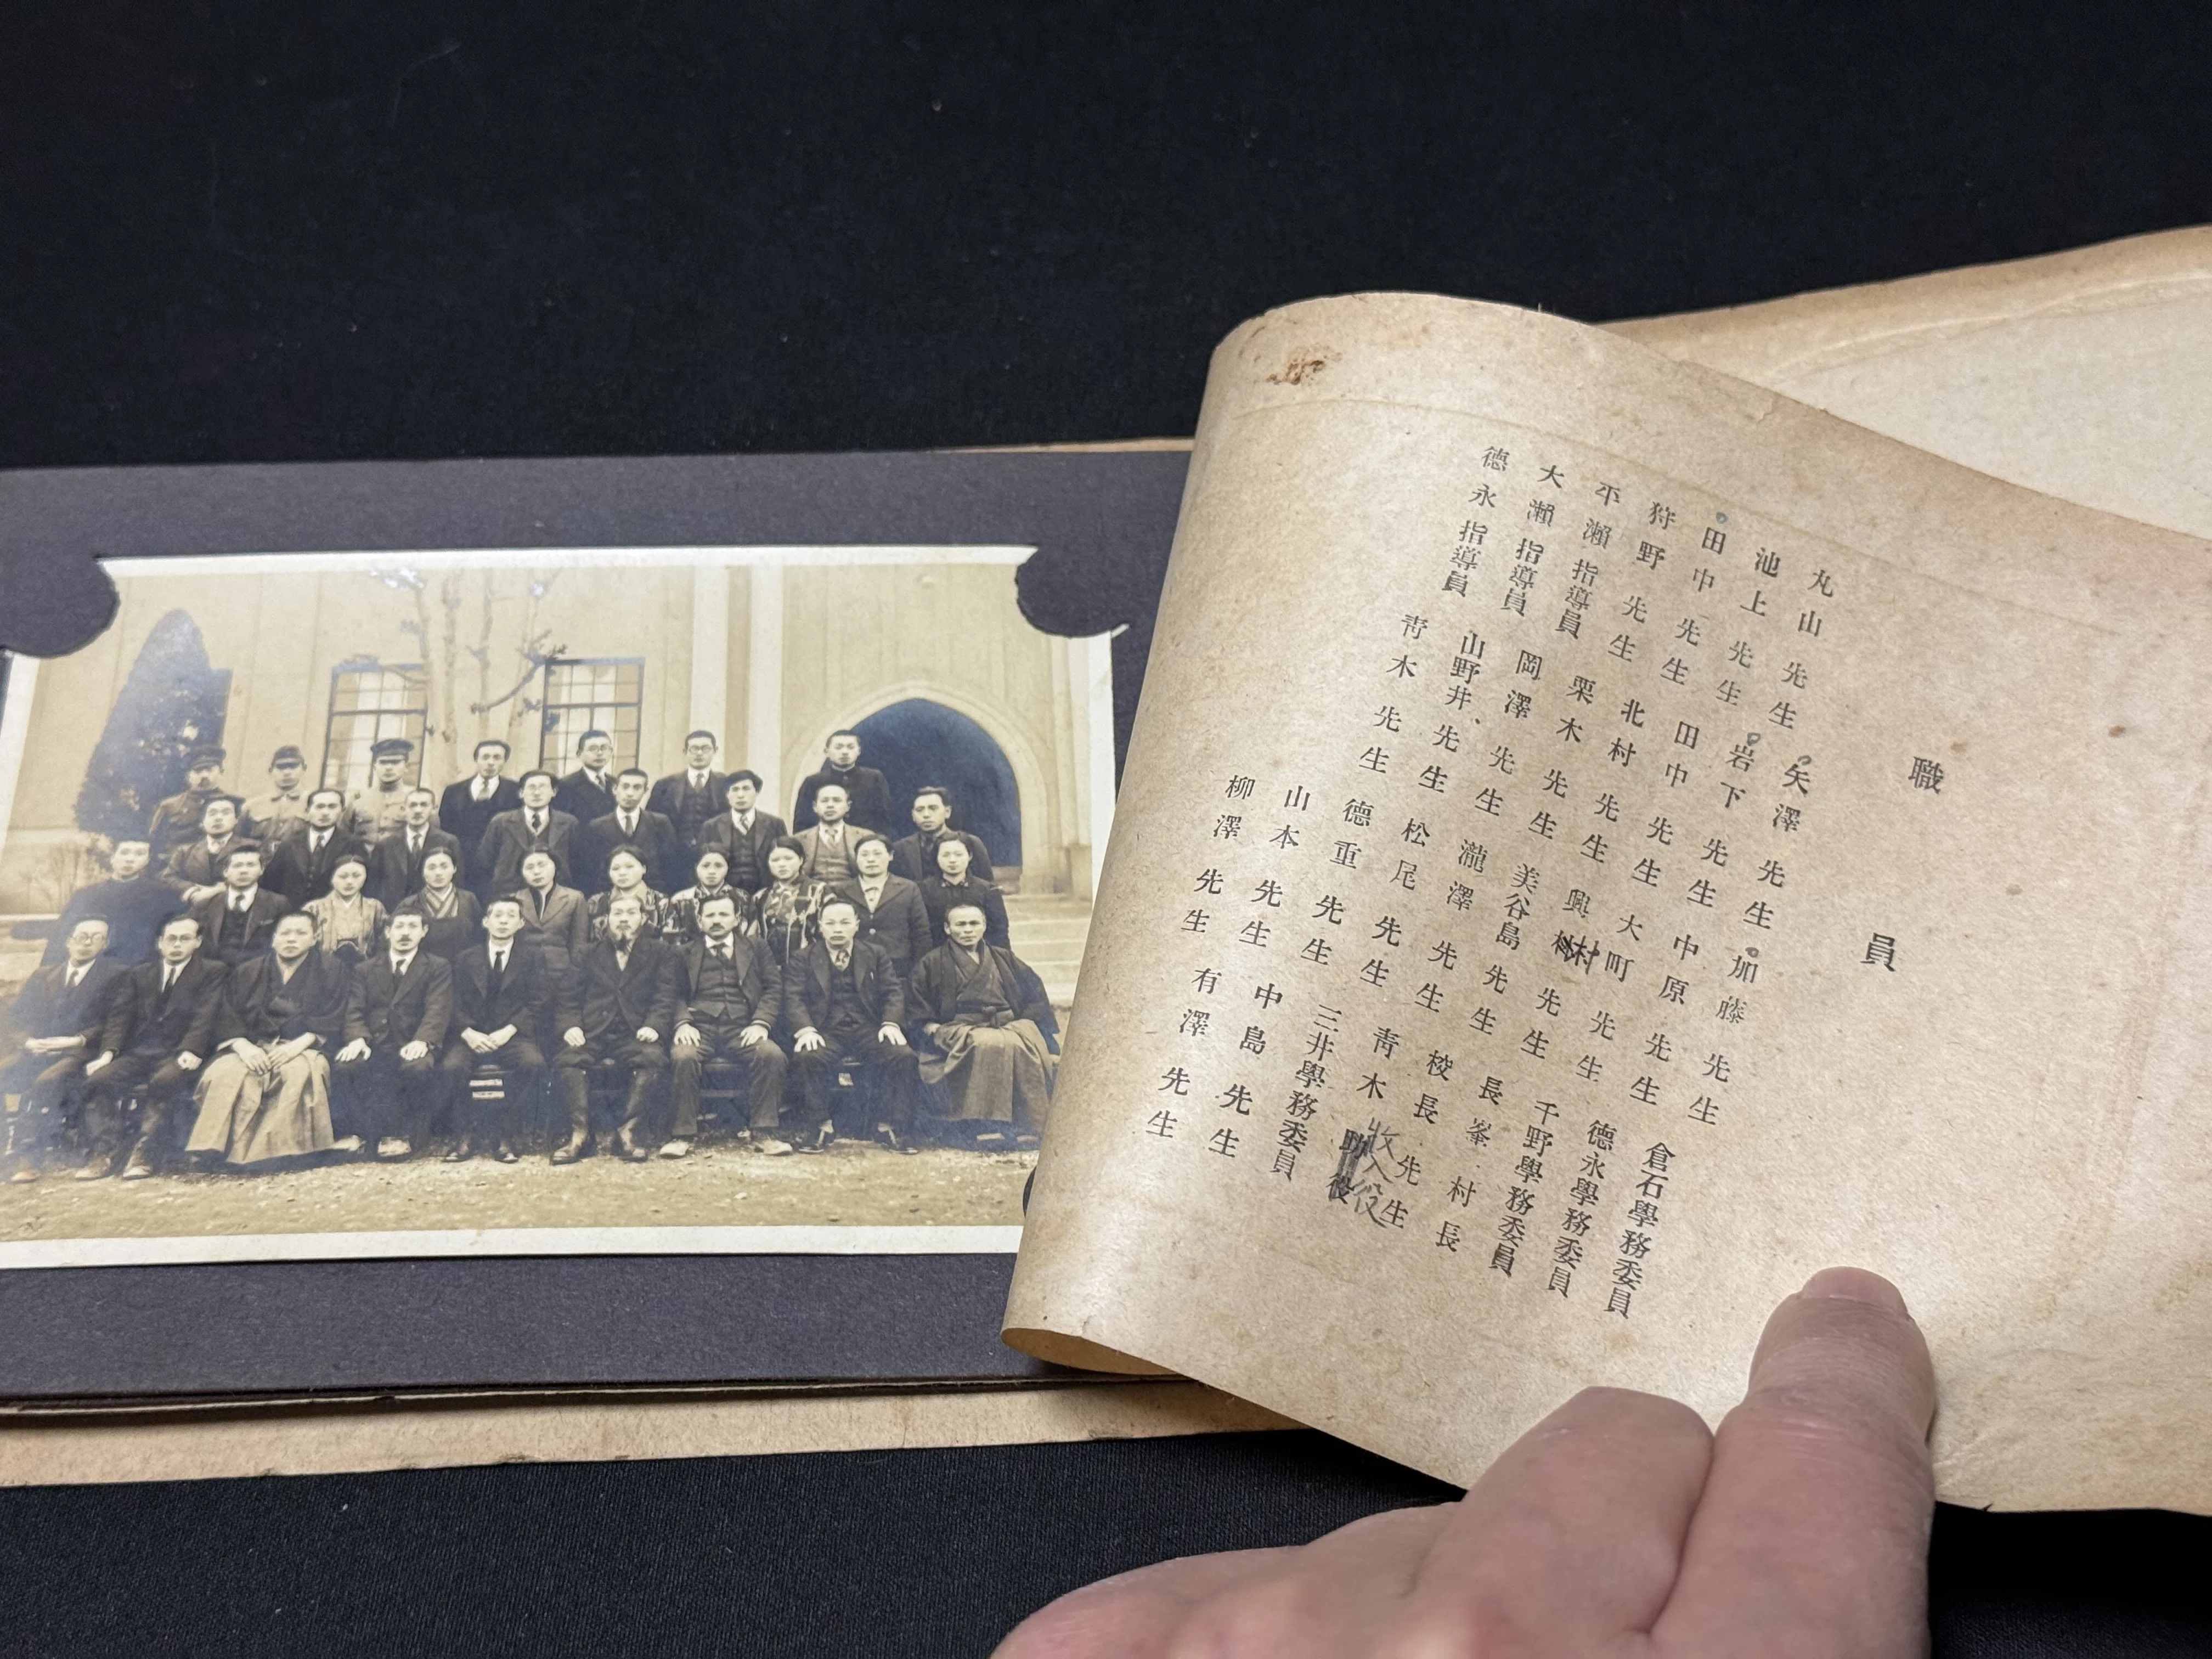 職員
丸山先生
池上先生
田中先生
狩野先生
平瀨指導員
大瀨指導員
德永指導員
矢澤先生
岩下先生
田中先生
北村先生
栗木先生
岡澤先生
山野井先生
靑木先生
加藤先生
中原先生
大町先生
興村先生
美谷島先生
瀧澤先生
松尾先生
德重先生
山本先生
柳澤先生
倉石學務委員
德永學務委員
千野學務委員
長峯村長
校長先生
靑木助役
收入役
三井學務委員
中島先生
有澤先生